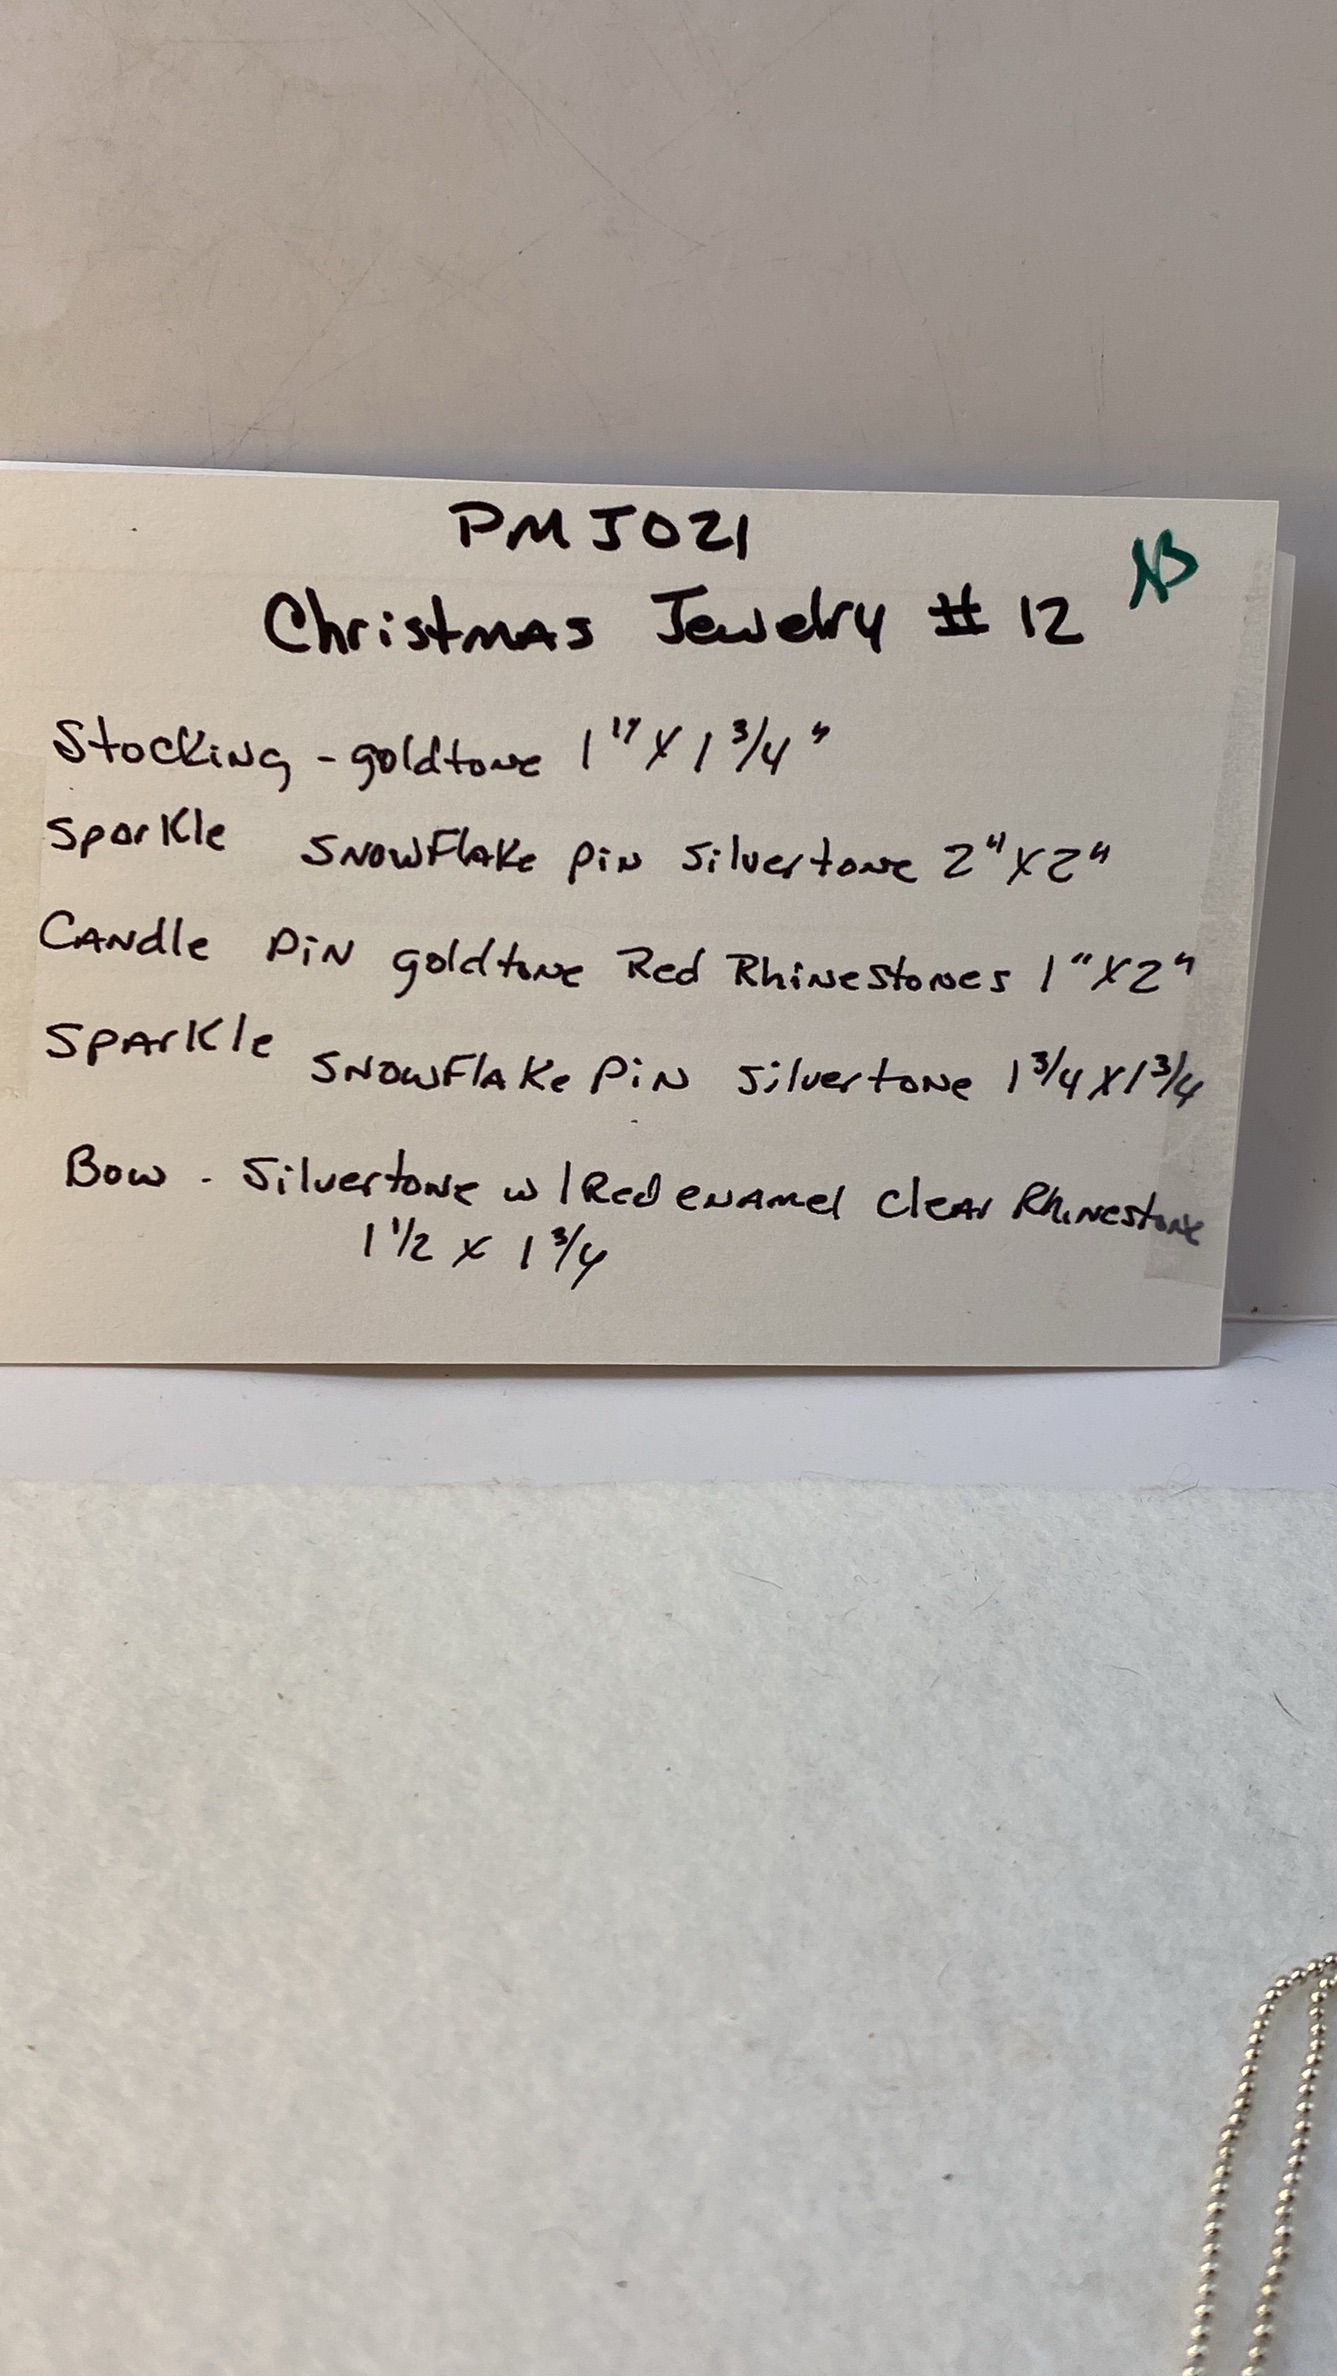 PMJ021
NB
Christmas Jewelry # 12
Stocking - goldtone 1" X 1 3/4"
Sparkle Snowflake pin silvertone 2" X 2"
Candle pin goldtone Red Rhinestones 1" X 2"
Sparkle Snowflake Pin silvertone 1 3/4 X 1 3/4
Bow - Silvertone w/ Red enamel Clear Rhinestone
1 1/2 x 1 3/4